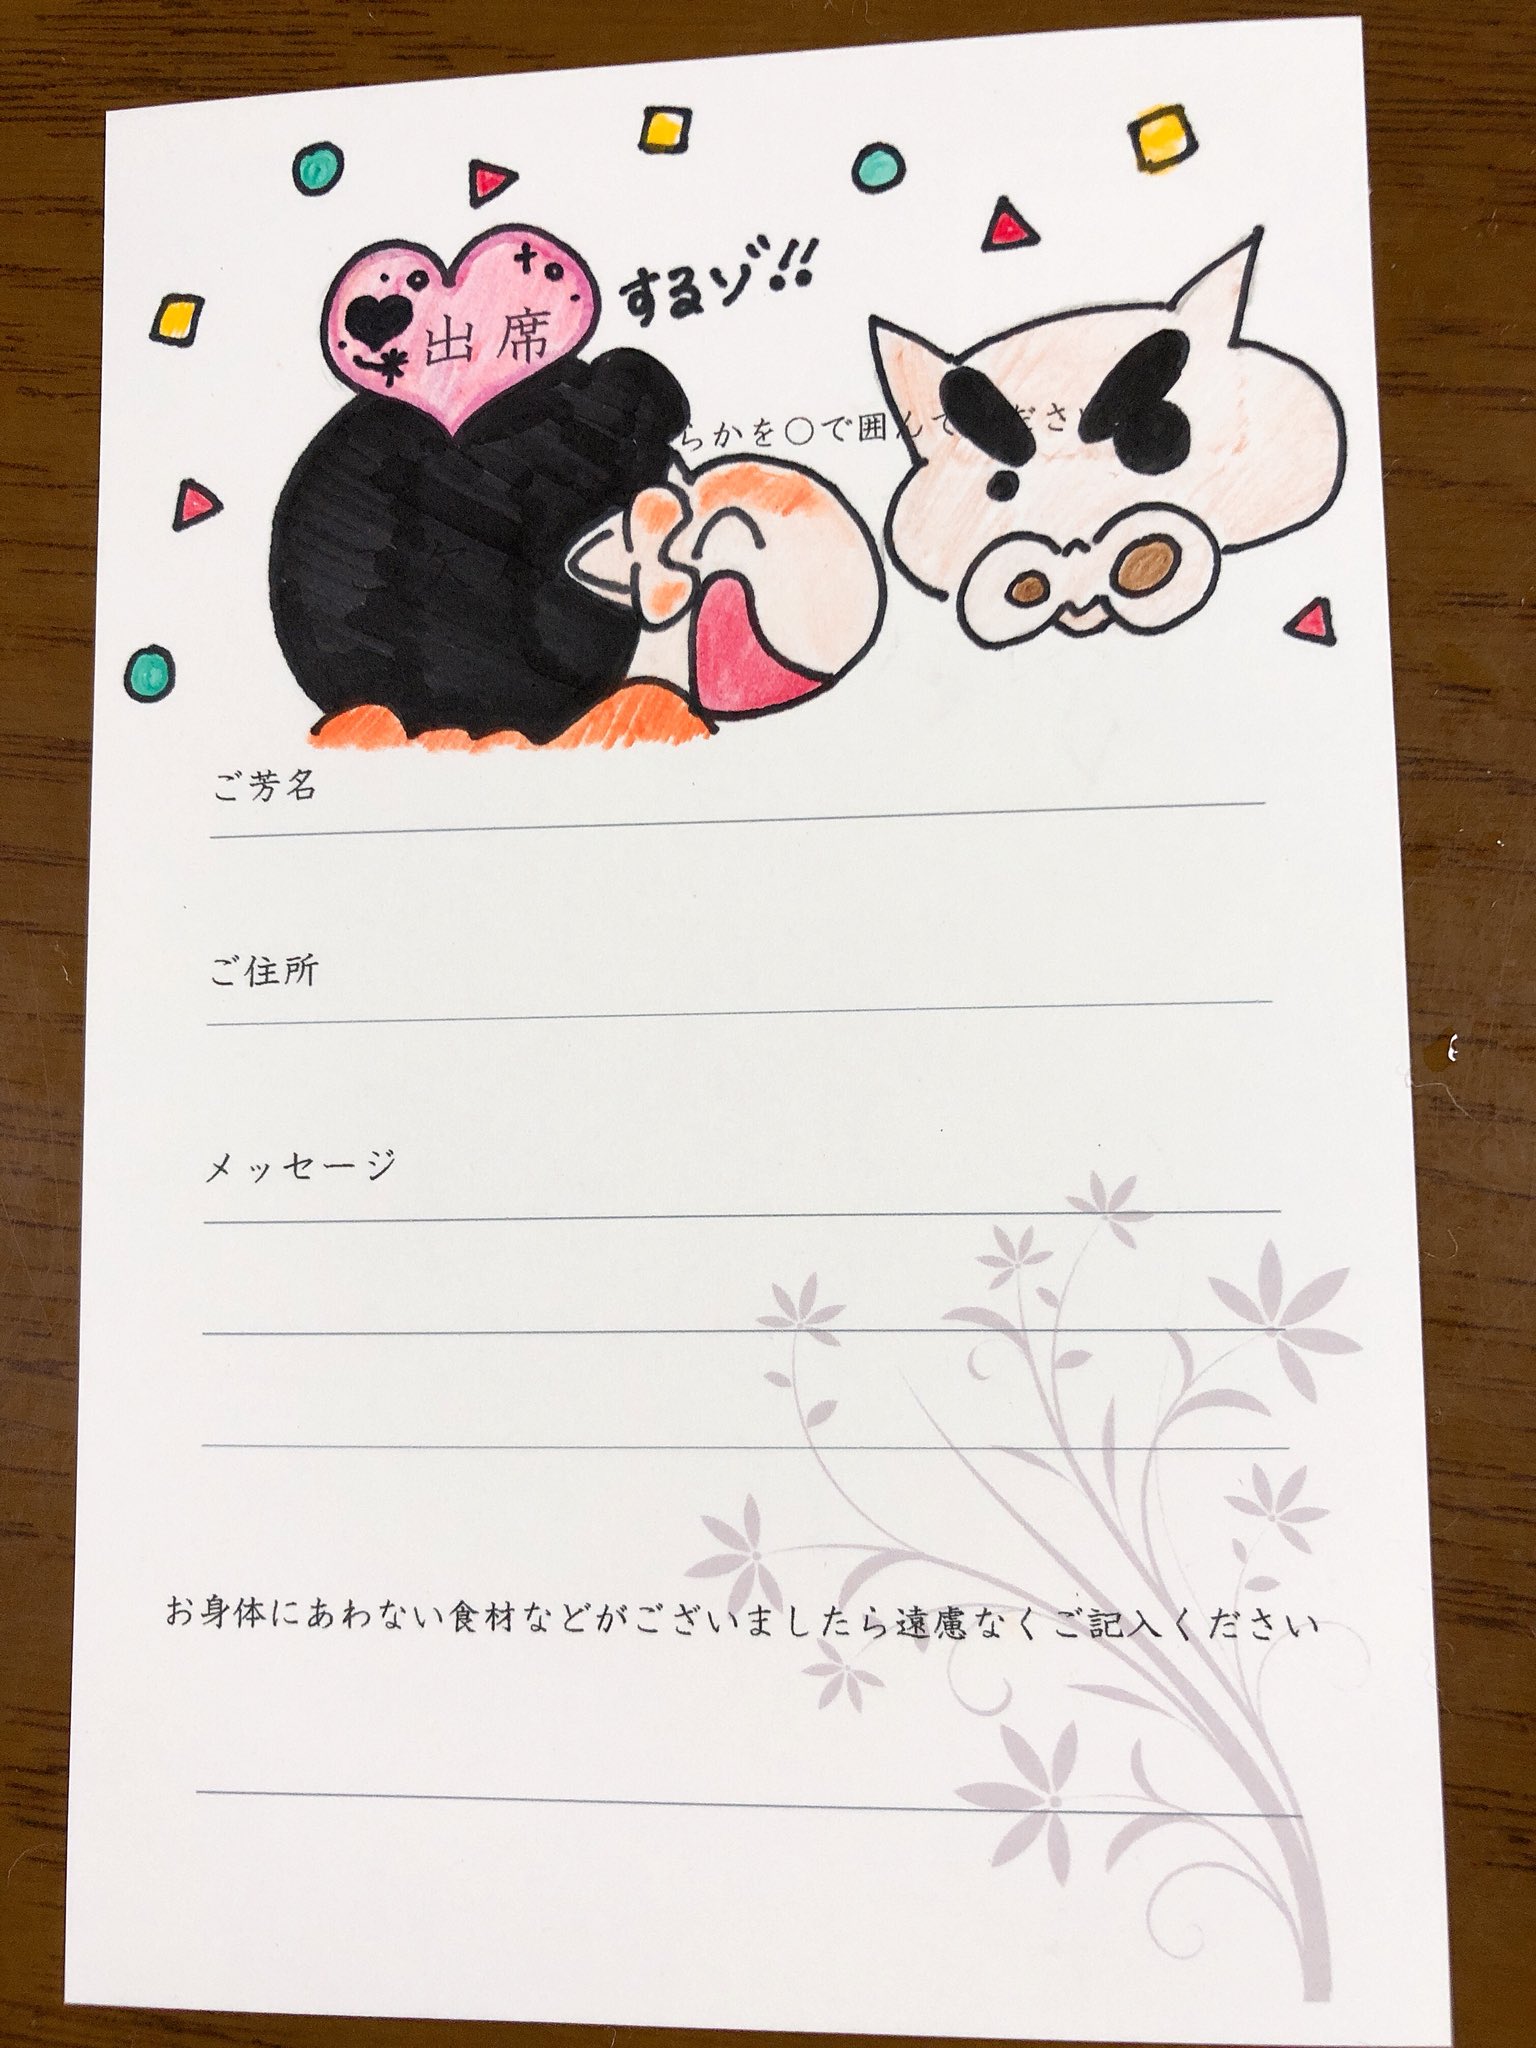 出席
するゾ!!
らかを〇で囲んで ださ
ご芳名
ご住所
メッセージ
お身体にあわない食材などがございましたら遠慮なくご記入ください